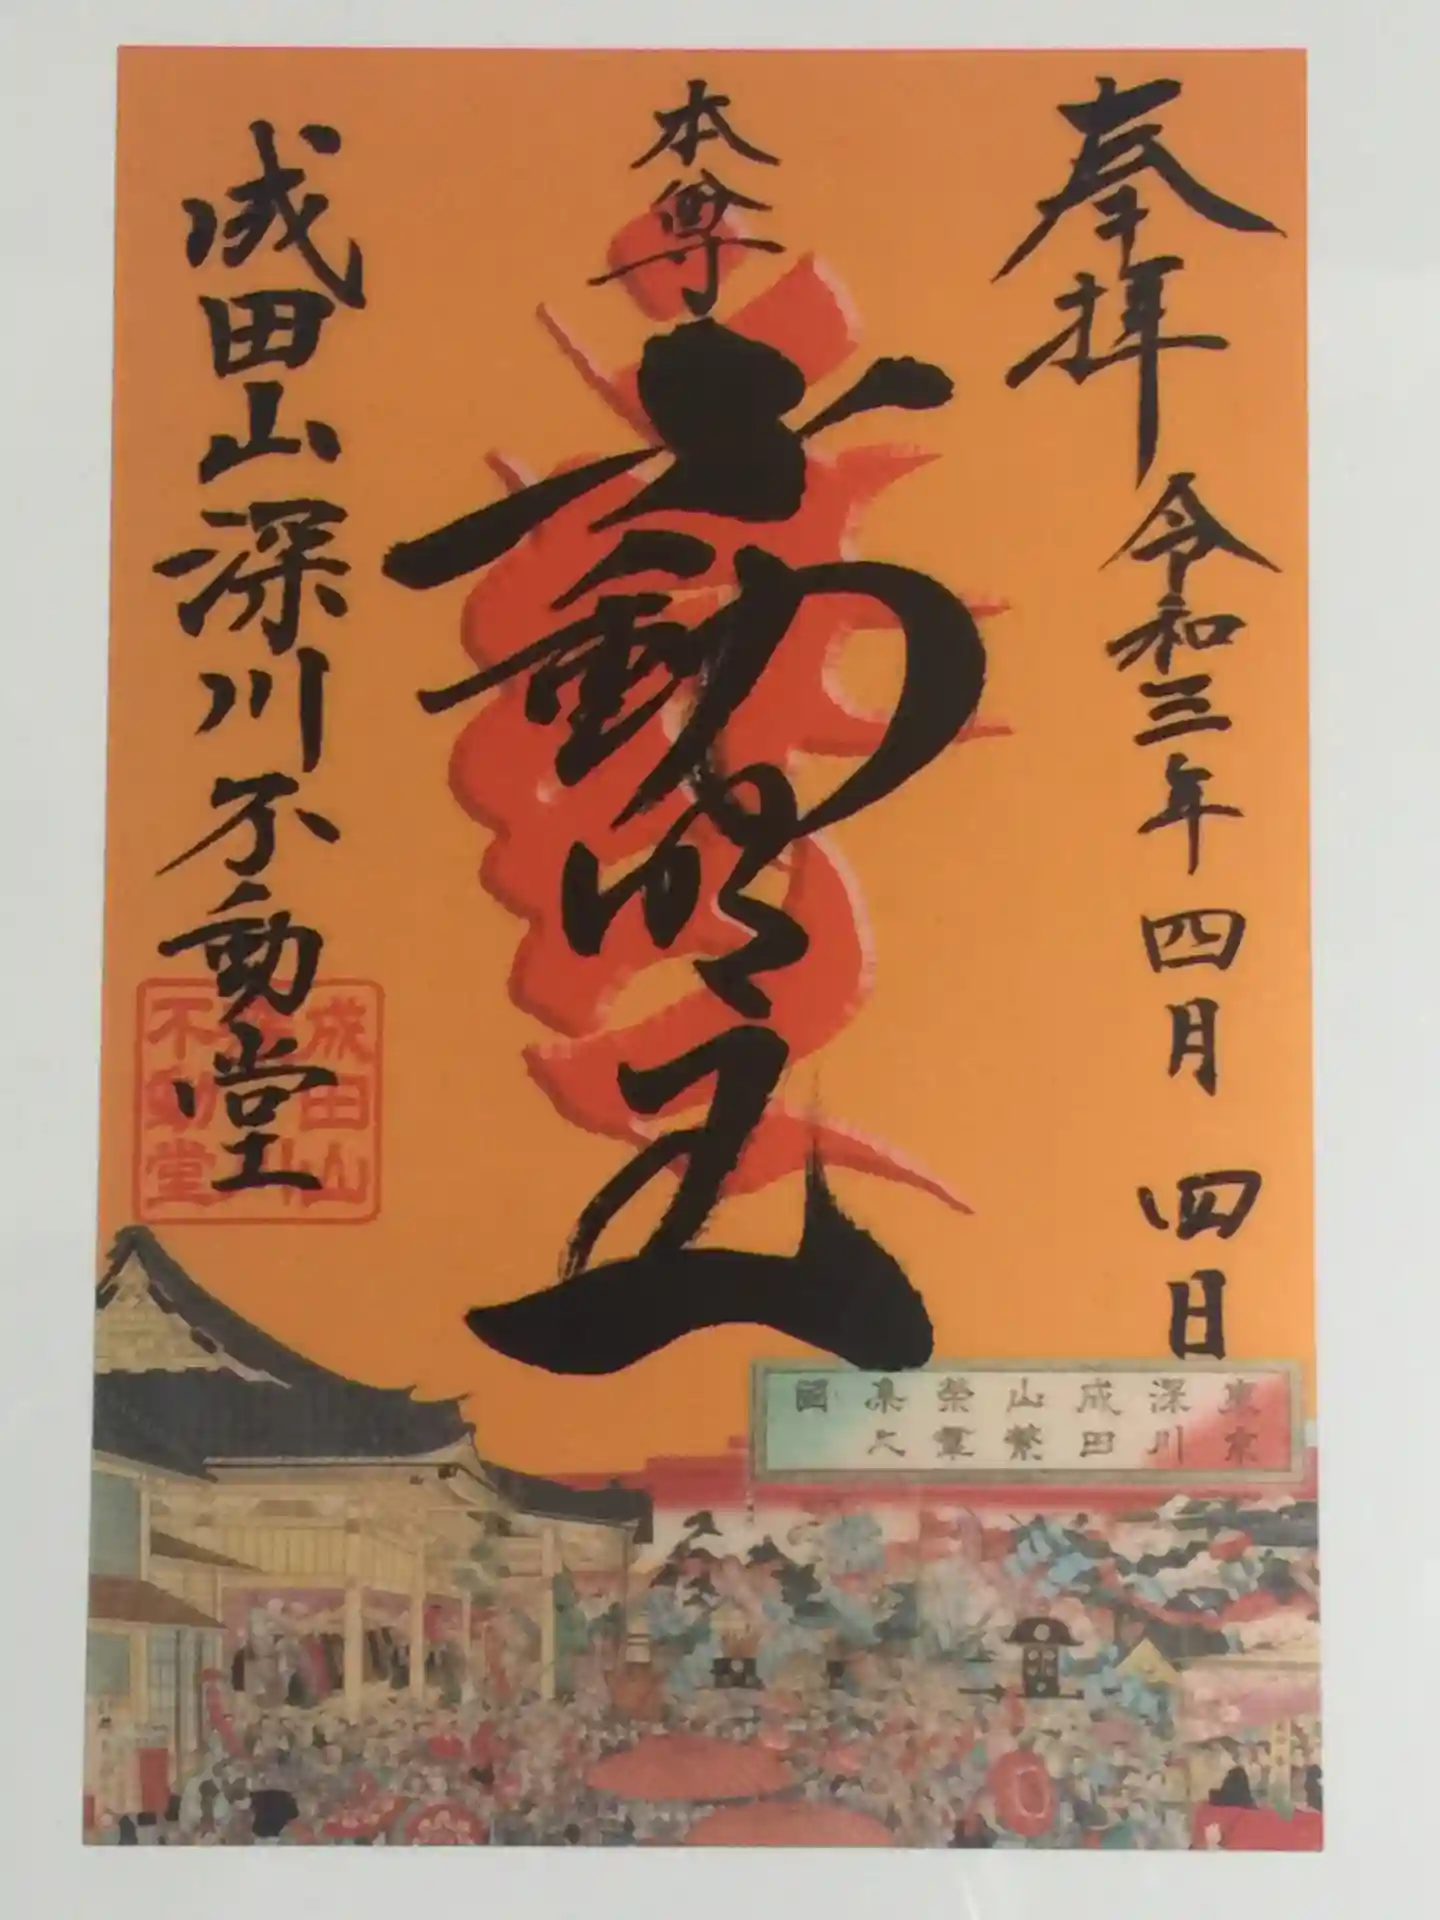 奉拝
令和三年四月四日
本尊
不動明王
成田山深川不動堂
成田山
不動堂
東京
深川
成田
山繁
榮群
集之
圖